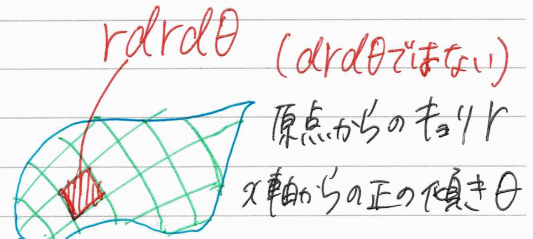 rdrdθ
(drdθではない)
原点からのキョリr
x軸からの正の傾きθ